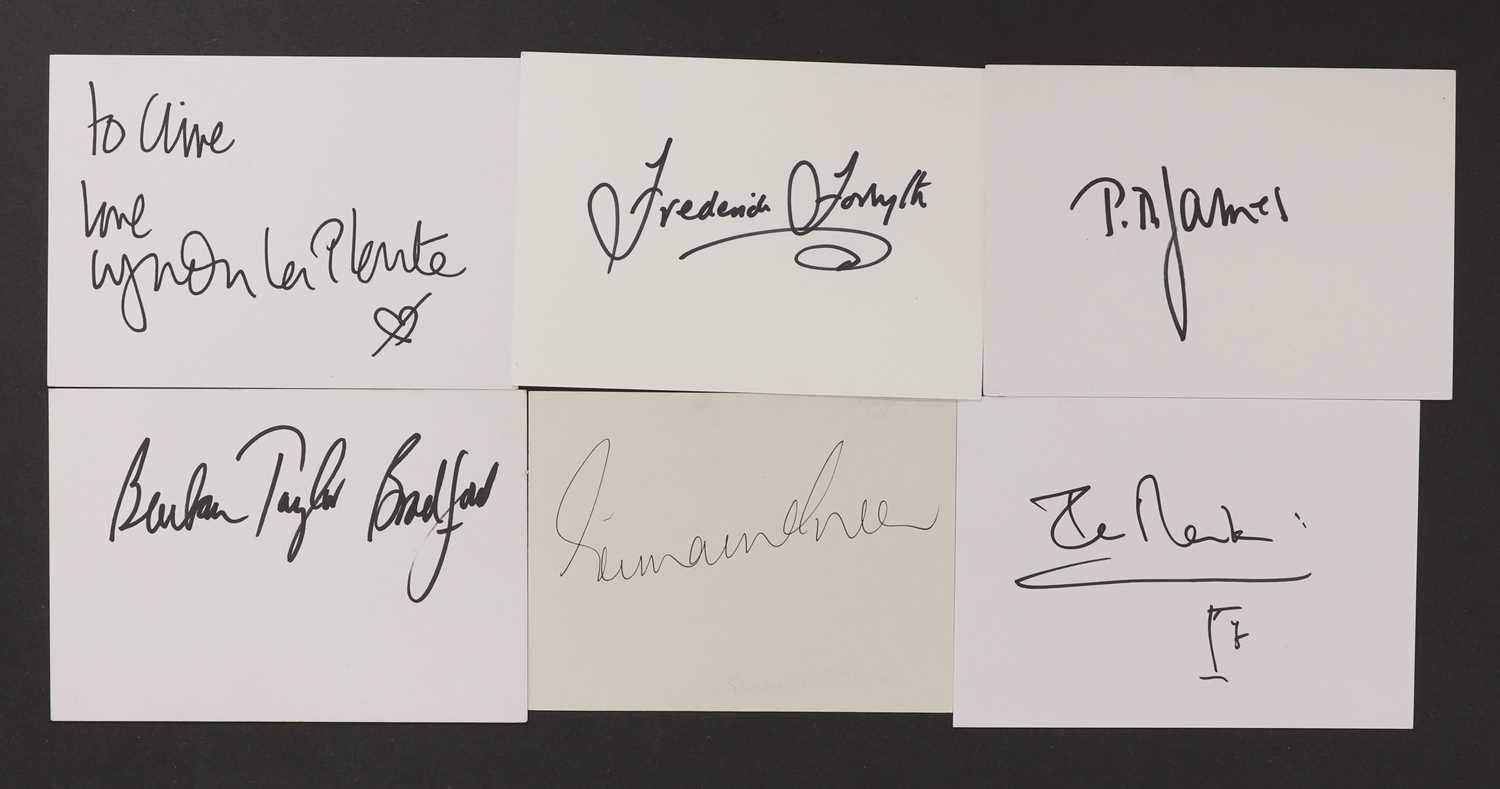 to Clive
love
Lynda La Plante
Frederick Forsyth
P.D. James
Barbara Taylor Bradford
Germaine Greer